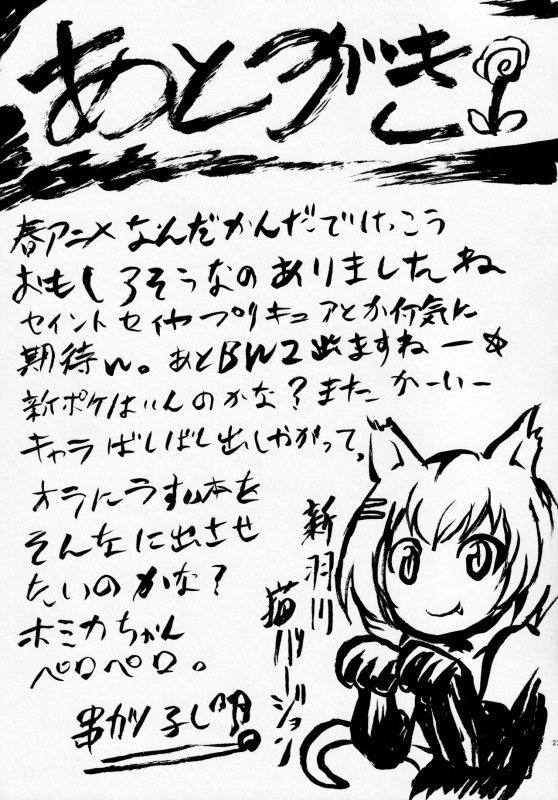 あとがき
春アニメなんだかんだでけっこう
おもしろそうなのありましたね
セイントセイヤプリキュアとか
期待w。あとBW2出ますねー☆
新ポケはいんのかな?またかーいー
キャラばしばし出しやがって。
オラにうす本を
そんなに出させ
たいのかな?
ホミカちゃん
ペロペロ。
串カツ子し明
新羽川
猫バージョン